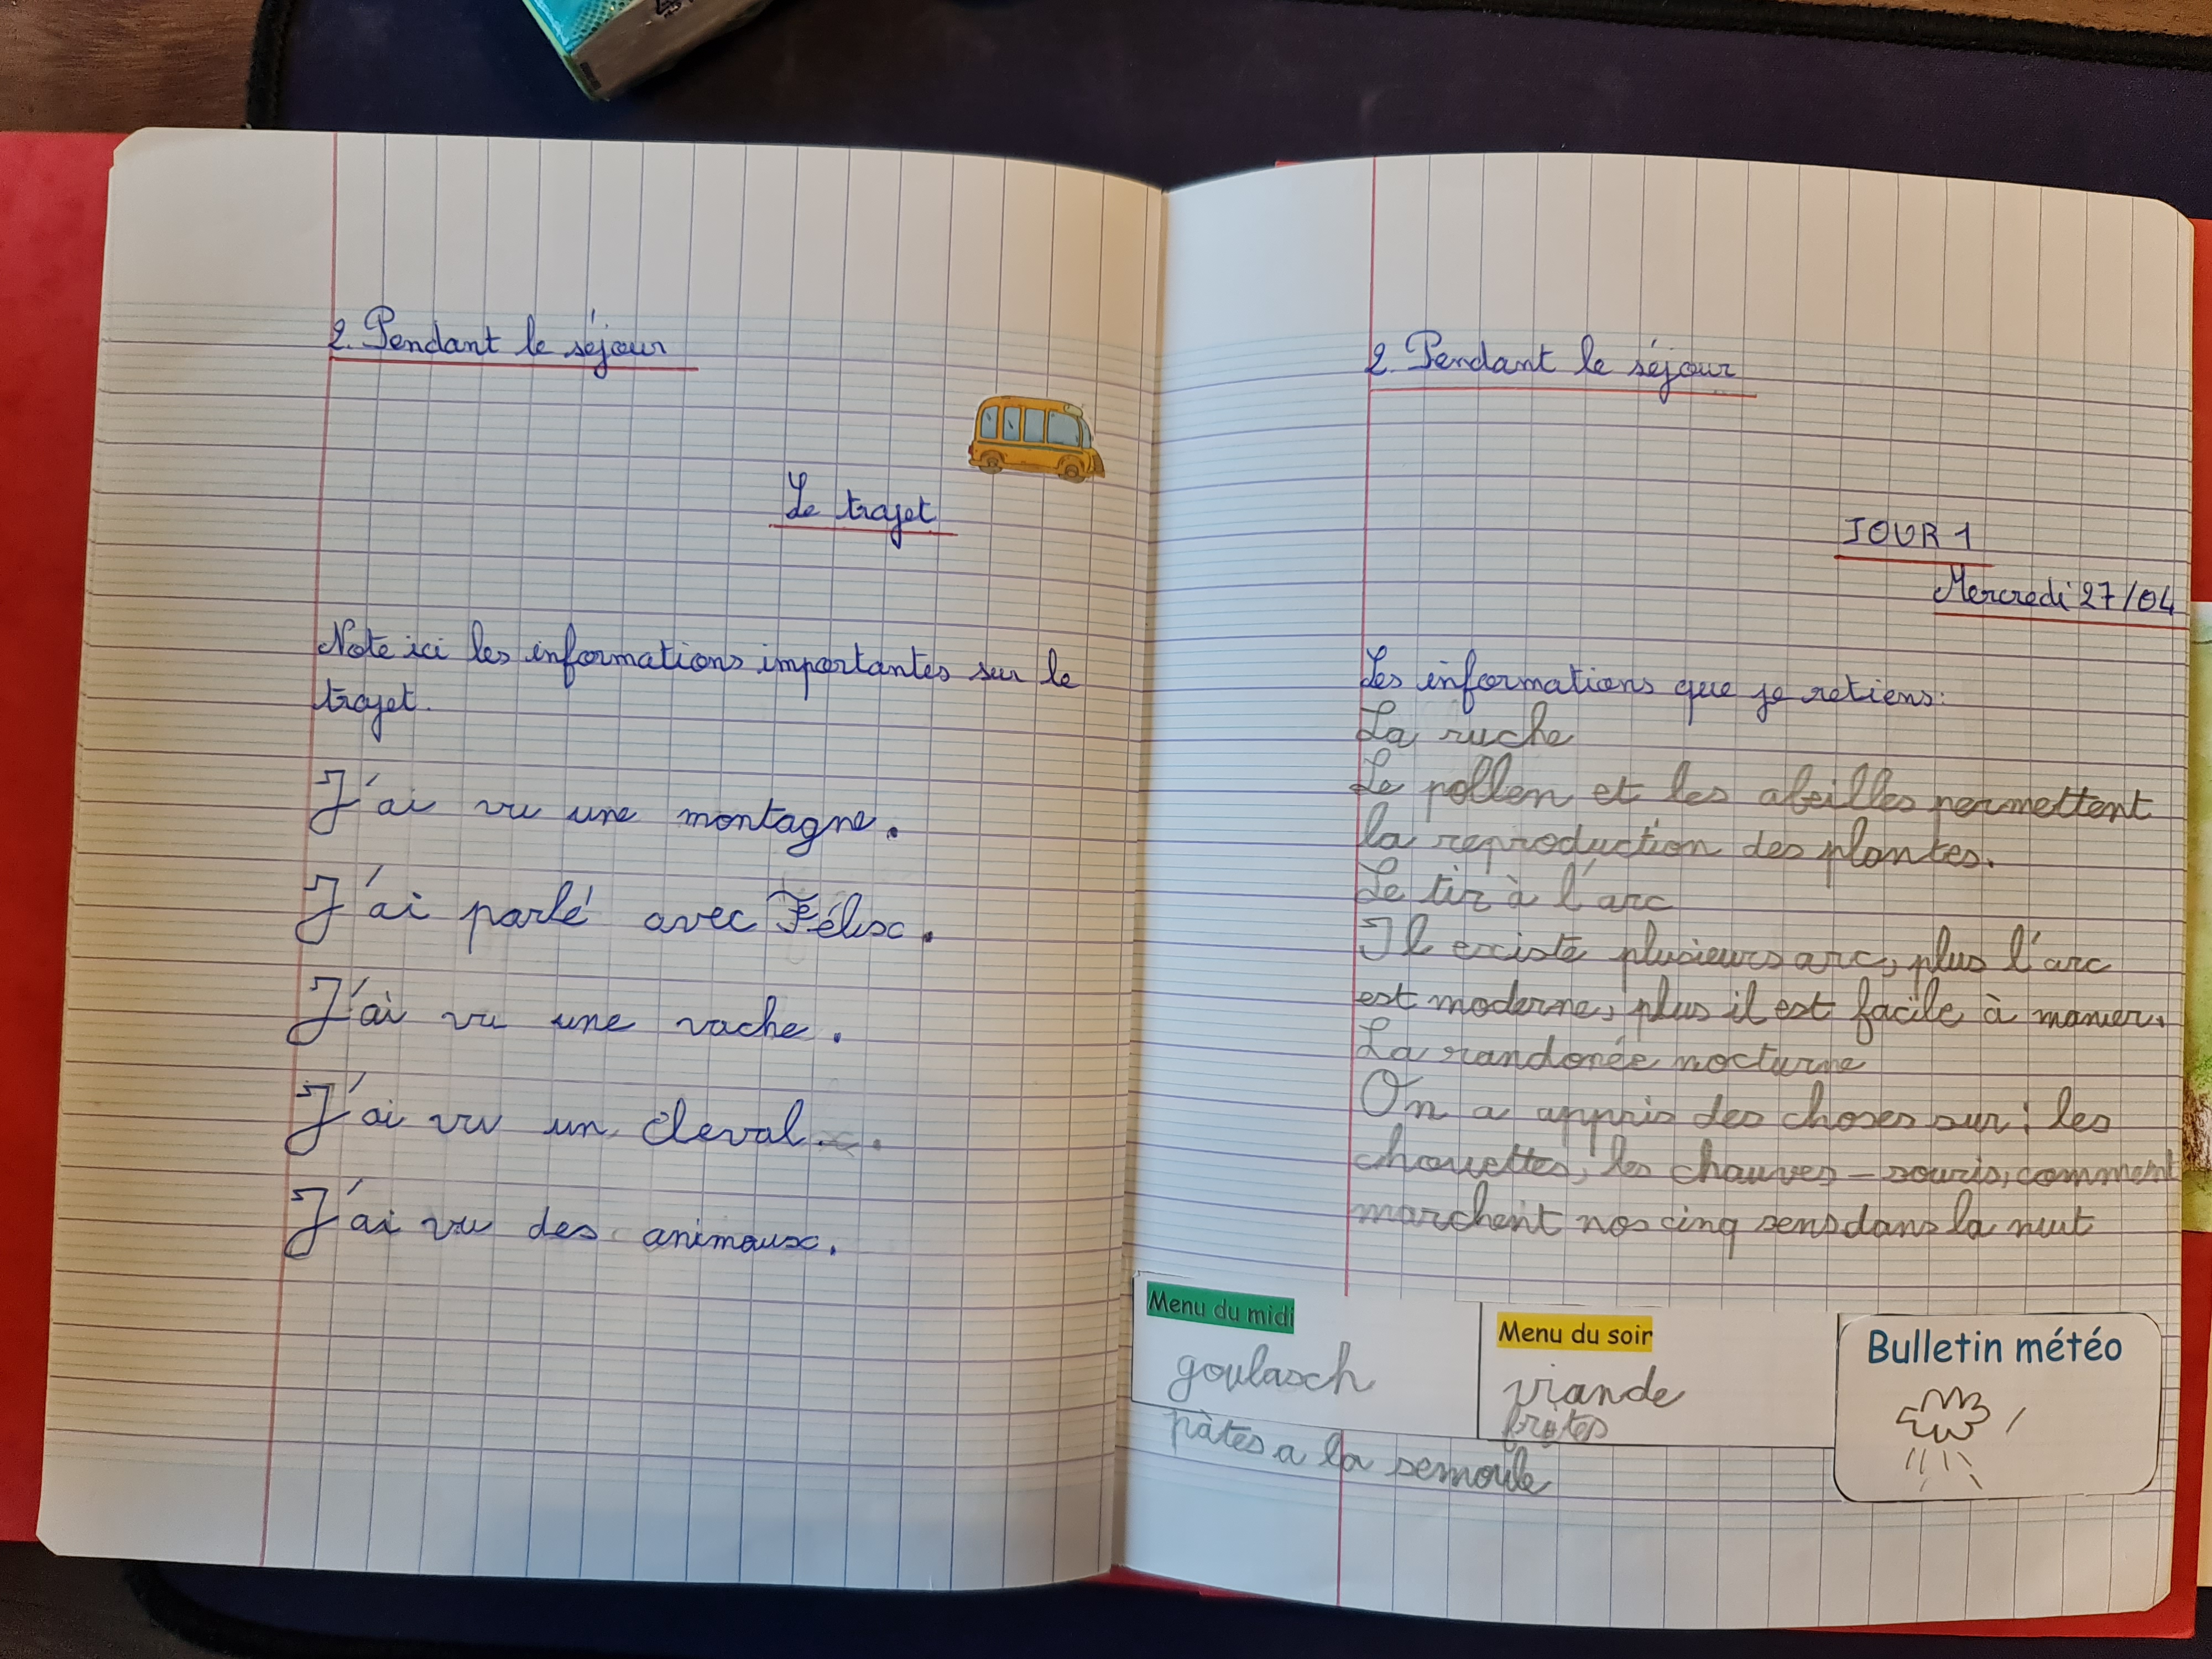 2. Pendant le séjour
Le trajet
Note ici les informations importantes sur le
trajet.
J'ai vu une montagne.
J'ai parlé avec Félix.
J'ai vu une vache.
J'ai vu un cheval.
J'ai vu des animaux.
2. Pendant le séjour
JOUR 1
Mercredi 27/04
Les informations que je retiens:
La ruche
Le pollen et les abeilles permettent
la reproduction des plantes.
Le tir à l'arc
Il existe plusieurs arc, plus l'arc
est moderne, plus il est facile à manier.
La randonée nocturne
On a appris des choses sur : les
chouettes, les chauves-souris, comment
marchent nos cinq sens dans la nuit
Menu du midi
goulasch
pàtes a la semoule
Menu du soir
viande
frites
Bulletin météo